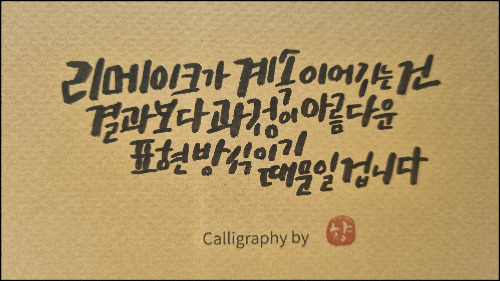 리메이크가 계속 이어가는 건
결과보다 과정이 아름다운
표현방식이기
때문일 겁니다
Calligraphy by 향